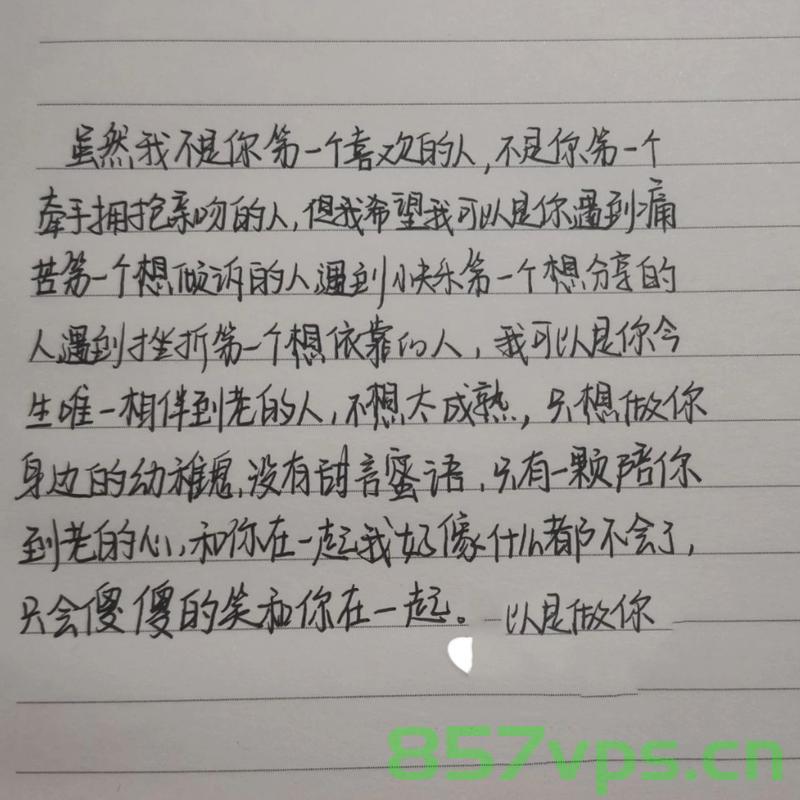 虽然我不是你第一个喜欢的人,不是你第一个
牵手拥抱亲吻的人,但我希望我可以是你遇到痛
苦第一个想倾诉的人遇到快乐第一个想分享的
人遇到挫折第一个想依靠的人,我可以是你今
生唯一相伴到老的人,不想太成熟,只想做你
身边的幼稚鬼,没有甜言蜜语,只有一颗陪你
到老的心,和你在一起我好像什么都不会了,
只会傻傻的笑和你在一起。 以是做你
857vps.cn